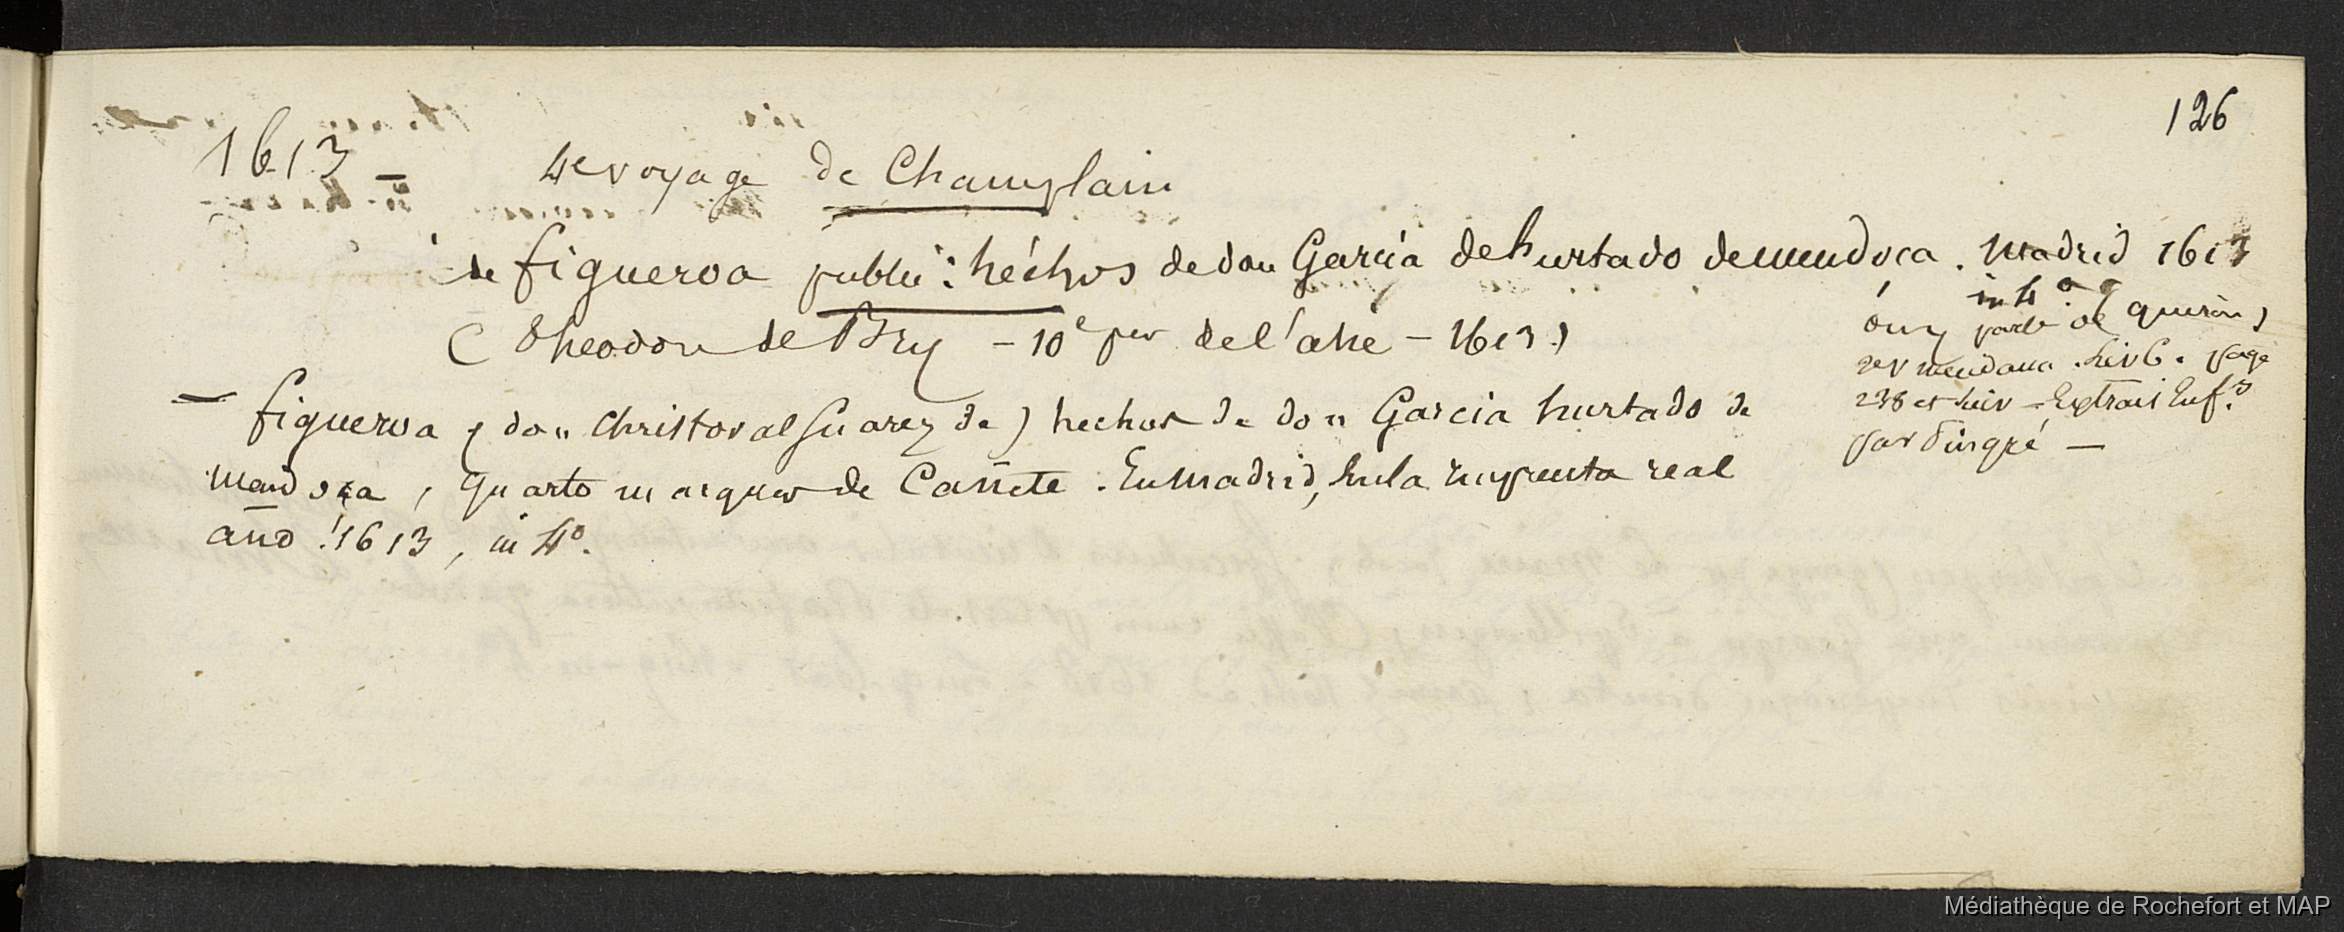 126
1613 — 4e voyage de Champlain
de figueroa publie : héchos de don García de hurtado de mendoca . Madrid 1613
in 4°.
( Theodore de Bry - 10e par de l'asie - 1613 )
ouy parle de quiros
et mendana . Liv 6 . page
238 et suiv - Extrait
par Pingré —
— figueroa ( don Christoval Suarez de ) hechos de don Garcia hurtado de
mendoza , quarto marques de Cañete . En madrid, En la imprenta real
año 1613 , in 4°.
Médiathèque de Rochefort et MAP